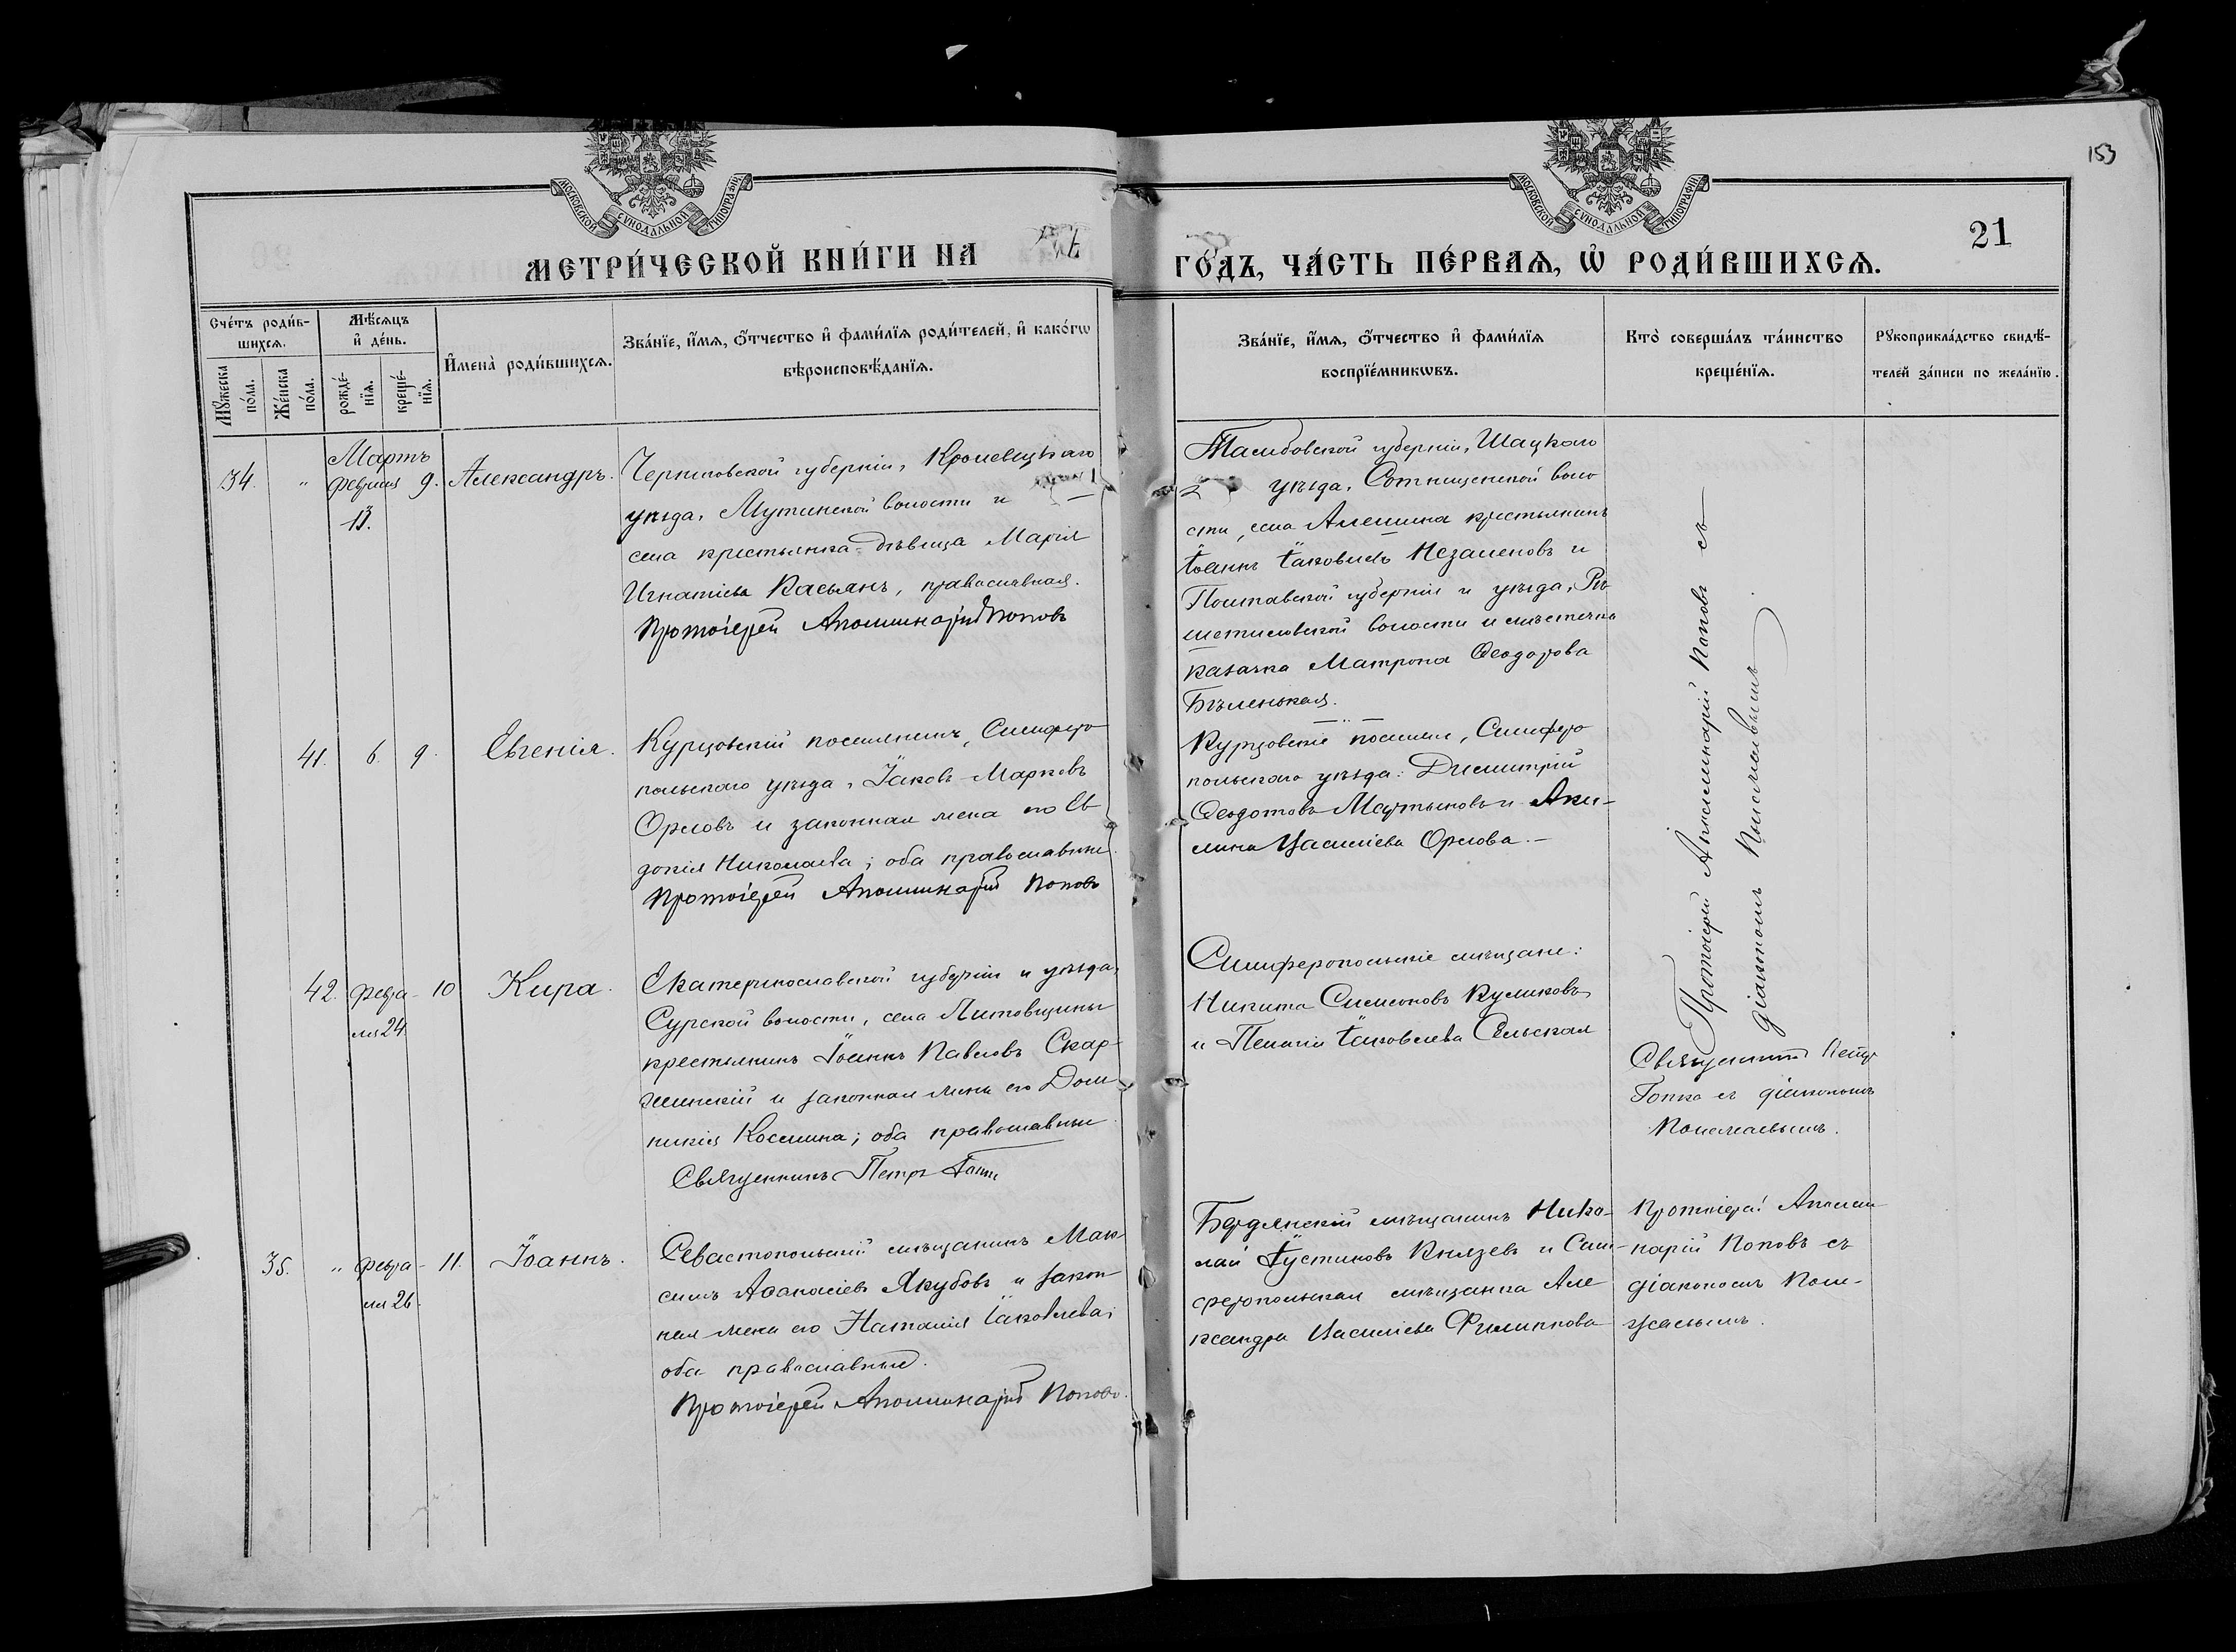 153
МОСКОВСКОЙ СУНОДАЛЬНОЙ ТИПОГРАФІИ
МОСКОВСКОЙ СУНОДАЛЬНОЙ ТИПОГРАФІИ
21
МЕТРИ́ЧЕСКОЙ КНИ́ГИ НА
ГО́ДЪ, ЧА́СТЬ ПЕ́РВАѦ, Ѡ РОДИ́ВШИХСѦ.
Сче́тъ роди́в-
шихсѧ.
Мꙋ́жеска по́ла.
Же́нска по́ла.
Мѣ́сѧцъ и де́нь.
рожде́-
нїѧ.
креще́-
нїѧ.
Имена̀ роди́вшихсѧ.
Зва́нїе, и́мѧ, ѻ́тчество и фами́лїѧ роди́телей, и како́гѡ
вѣроисповѣ́данїѧ.
Зва́нїе, и́мѧ, ѻ́тчество и фами́лїѧ
воспрїе́мникѡвъ.
Кто̀ соверша́лъ та́инство
креще́нїѧ.
Рꙋкоприкла́дство свидѣ́-
телей за́писи по жела́нїю.
Мартъ
34. " Февраля 13. 9. Александръ.
Черниговской губерніи, Кролевецкаго
уѣзда, Мутинской волости и
села крестьянка-дѣвица Марія
Игнатіева Касьянъ, православная.
Протоіерей Аполлинарій Поповъ
Тамбовской губерніи, Шацкаго
уѣзда, Сотницынской воло
сти, села Алешина крестьянинъ
Іоаннъ Іаковлевъ Незаменовъ и
Полтавской губерніи и уѣзда, Рѣ
шетиловской волости и мѣстечка
казачка Матрона Ѳеодорова
Бѣленькая.
Протоіерей Аполлинарій Поповъ съ
діакономъ
41. 6. 9. Евгенія.
Курцовскій поселянинъ, Симферо
польскаго уѣзда, Іаковъ Марковъ
Орловъ и законная жена его Ев
докія Николаева; оба православные.
Протоіерей Аполлинарій Поповъ
Курцовскіе поселяне, Симферо
польскаго уѣзда: Димитрій
Ѳеодотовъ Мартыновъ и Аки-
лина Василіева Орлова.
42. Февра-
ля 24. 10 Кира.
Екатеринославской губерніи и уѣзда,
Сурской волости, села Литовщины
крестьянинъ Іоаннъ Павловъ Скар-
жинскій и законная жена его Дом
никія Космина; оба православные
Священникъ Петръ
Симферопольскіе мѣщане:
Никита Симеоновъ Куликовъ
и Пелагія Іаковлева Сѣльская
Священникъ Петръ
съ діакономъ
35. " Февра-
ля 26. 11. Іоаннъ.
Севастопольскій мѣщанинъ Мак
симъ Аѳанасіевъ Якубовъ и закон
ная жена его Наталія Іаковлева;
оба православные.
Протоіерей Аполлинарій Поповъ.
Бердянскій мѣщанинъ Нико-
лай Іустиновъ Князевъ и Сим-
феропольская мѣщанка Але
ксандра Василіева Филиппова
Протоіерей Аполли-
нарій Поповъ съ
діакономъ